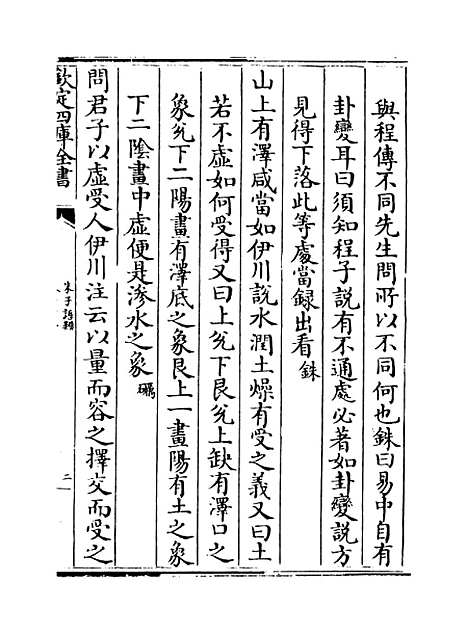 與程傳不同先生問所以不同何也銖曰易中自有
卦變耳曰須知程子說有不通處必著如卦變說方
見得下落此等處當録出看銖
山上有澤咸當如伊川說水潤土燥有受之義又曰土
若不虚如何受得又曰上兊下艮兊上缺有澤口之
象兊下二陽畫有澤底之象艮上一畫陽有土之象
下二陰畫中虚便是滲水之象㽦
問君子以虚受人伊川注云以量而容之擇交而受之
欽定四庫全書
朱子語類
二